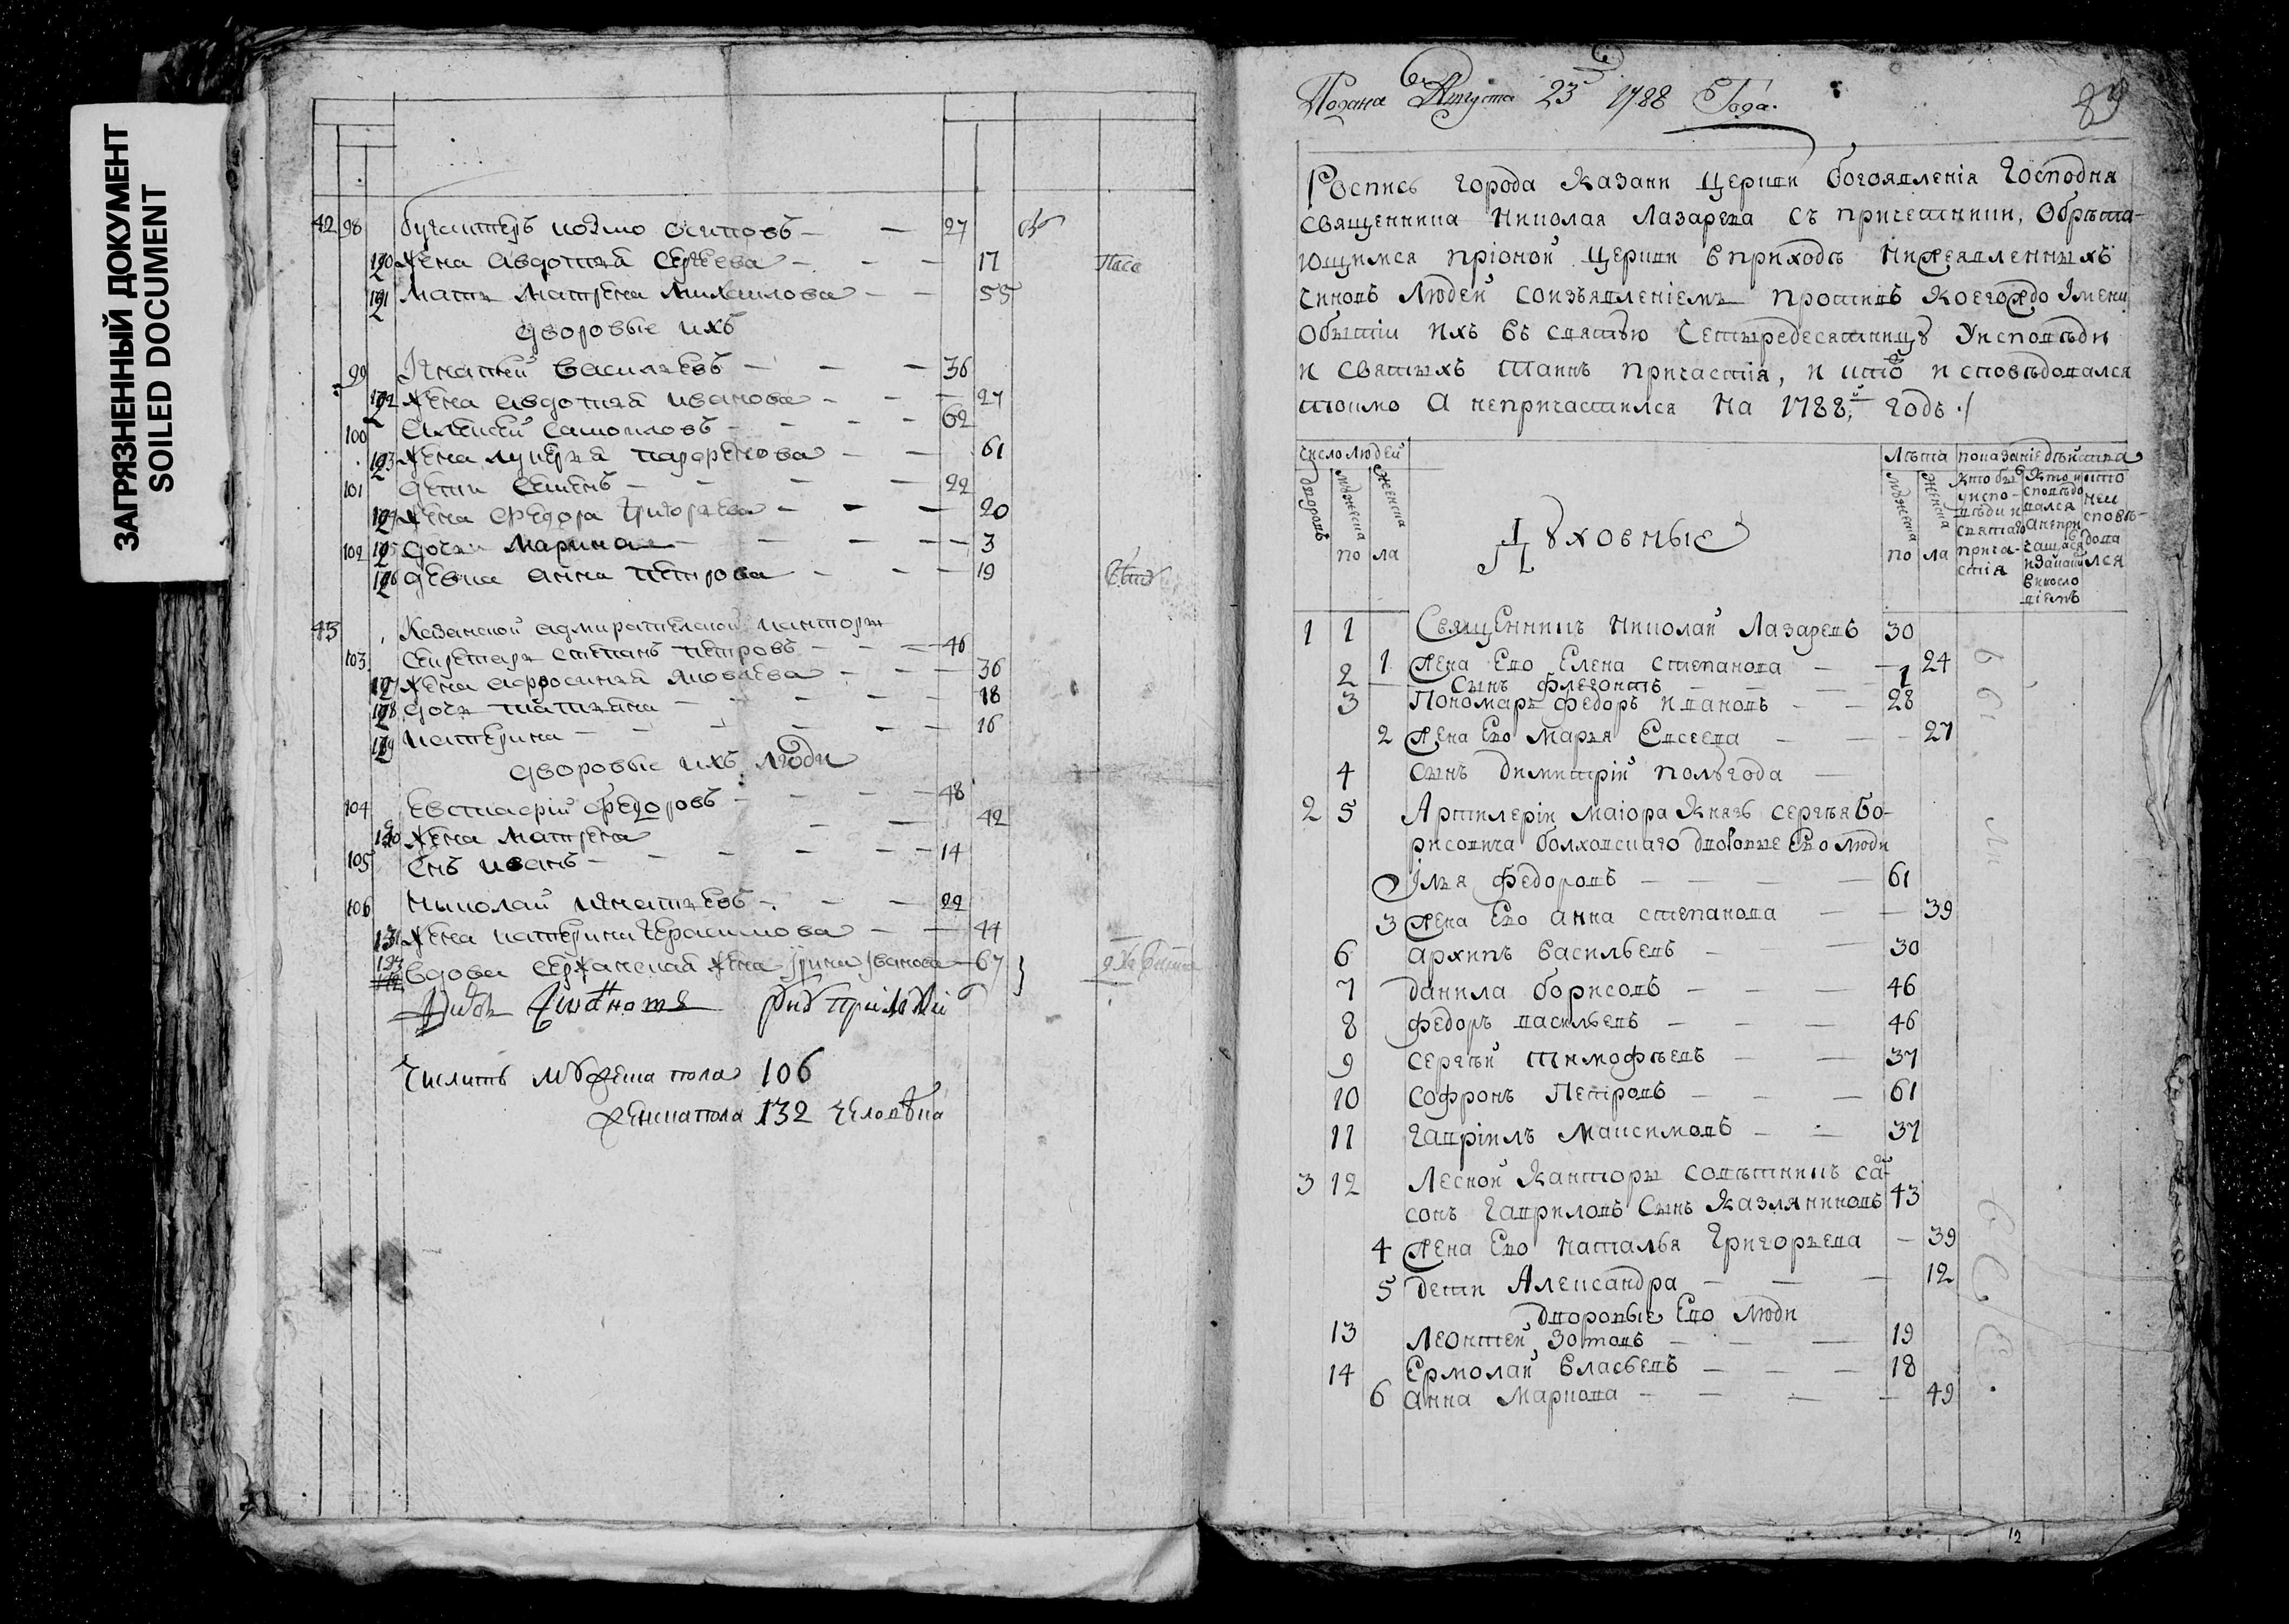 ЗАГРЯЗНЕННЫЙ ДОКУМЕНТ
SOILED DOCUMENT
42 98 бухгалтеръ козмо осиповъ — — 27
120 жена авдотья Сергеева — — — 17
121 мать матрена михаилова — — 55
дворовые ихъ
99 Игнатей васильевъ — — — 36
122 жена авдотья иванова — — — 27
100 алексей самоиловъ — — — 62
123 жена лукерья парфенова — — 61
101 дети семенъ — — — 22
124 жена федора григорьева — — — 20
102 125 дочь марина — — — 3
126 девка анна петрова — — — 19
43 Казанской адмиралтейской канторы
103 секретарь степанъ петровъ — — — 46
127 жена афросинья яковлева — — — 36
128 дочь татьяна — — — 18
129 катерина — — — 16
дворовые ихъ люди
104 Евстафїй федоровъ — — — 48
130 жена матрена — — 42
105 снъ иванъ — — — 14
106 николай игнатьевъ — — — 22
131 жена катерина герасимова — — 44
вдова сержанская жена ирина иванова — 67
Числитъ мужеска пола 106
женска пола 132 человѣка
Подана Августа 23 1788 Года.
89
Роспись города Казани церкви богоявленїя Господня
священника Николая Лазарева съ причетники, Обрѣта-
ющимся при оной церкви в приходѣ нижеявленныхъ
чиновъ людей соизъявленїемъ противъ коегождо Імени
О бытїи ихъ въ святую четыредесятницу У исповѣди
и святыхъ таинъ причастїя, и кто исповѣдовался
токмо а непричастился На 1788й годъ
число людей Лѣта показанїе дѣйства
дворовъ мужеска женска по ла
Духовные
мужеска женска по ла
1 1 Священникъ Николай Лазаревъ 30
1 жена Ево Елена степанова — — 24
2 Сынъ флегонтъ — — — 1
3 Пономарь федоръ ивановъ — — 28
2 жена Ево Марья Евсеева — — 27
4 сынъ димитрїй полъгода —
2 5 Артилерїи маїора Князь сергѣя бо-
рисовича болховскаго дворовые Ево люди
Ілья федоровъ — — — — 61
3 жена Ево анна степанова — — 39
6 архипъ васильевъ — — 30
7 данила борисовъ — — — 46
8 федоръ васильевъ — — — 46
9 сергѣй тимофѣевъ — — 37
10 софронъ Петровъ — — — 61
11 гаврїилъ максимовъ — — 37
3 12 Лесной канторы совѣтникъ са-
сонъ гавриловъ Сынъ Казляниновъ 43
4 жена Ево наталья григорьева — 39
5 дети Александра — — — 12
дворовые Ево люди
13 Леонтей Зотовъ — — — 19
14 Ермолай власьевъ — — — 18
6 анна Маркова — — — — 49
12